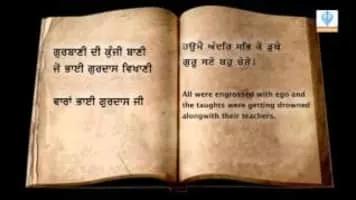 ਗੁਰਬਾਣੀ ਦੀ ਕੁੰਜੀ ਬਾਣੀ
ਜੋ ਭਾਈ ਗੁਰਦਾਸ ਵਿਖਾਣੀ
ਵਾਰਾਂ ਭਾਈ ਗੁਰਦਾਸ ਜੀ
ਹਉਮੈ ਅੰਦਰਿ ਸਭਿ ਕੋ ਡੁਬੇ
ਗੁਰੂ ਸਣੇ ਬਹੁ ਚੇਲੇ।
All were engrossed with ego and
the taughts were getting drowned
alongwith their teachers.